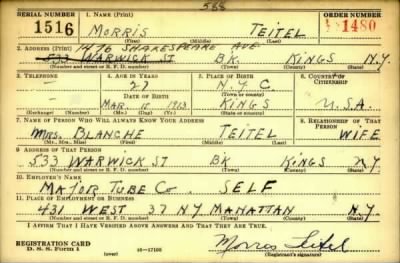 588
SERIAL NUMBER 1. NAME (Print) ORDER NUMBER
1516 MORRIS TEITEL 1480
(First) (Middle) (Last)
1476 SHAKESPEARE AVE
2. ADDRESS (Print)
533 WARWICK ST BK. KINGS N.Y.
(Number and street or R. F. D. number) (Town) (County) (State)
3. TELEPHONE 4. AGE IN YEARS 5. PLACE OF BIRTH 6. COUNTRY OF CITIZENSHIP
— 27 N.Y.C
DATE OF BIRTH (Town or county)
— MAR. 15 1913 KINGS U.S.A.
(Exchange) (Number) (Mo.) (Day) (Yr.) (State or country)
7. NAME OF PERSON WHO WILL ALWAYS KNOW YOUR ADDRESS 8. RELATIONSHIP OF THAT PERSON
MRS. BLANCHE TEITEL WIFE
(Mr., Mrs., Miss) (First) (Middle) (Last)
9. ADDRESS OF THAT PERSON
533 WARWICK ST BK KINGS NY
(Number and street or R. F. D. number) (Town) (County) (State)
10. EMPLOYER'S NAME
MAJOR TUBE CO. SELF
11. PLACE OF EMPLOYMENT OR BUSINESS
431 WEST 37 NY MANATTAN N.Y.
(Number and street or R. F. D. number) (Town) (County) (State)
I AFFIRM THAT I HAVE VERIFIED ABOVE ANSWERS AND THAT THEY ARE TRUE.
REGISTRATION CARD
D. S. S. Form 1 (over) 16—17105 Morris Teitel
(Registrant's signature)